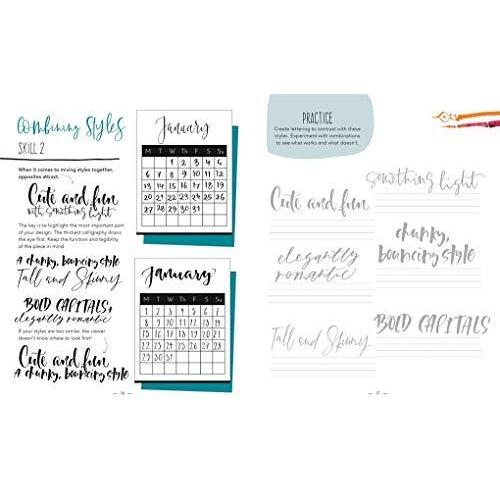 Combining Styles
SKILL 2
When it comes to mixing styles together,
opposites attract.
Cute and fun
with something light
The key is to highlight the most important
part of your design. The thickest calligraphy draws
the eye first. Keep the function and legibility
of the piece in mind.
A chunky, bouncing style
Tall and Skinny
BOLD CAPITALS,
elegantly romantic
If your styles are too similar, the viewer
doesn't know where to look first!
Cute and fun
A chunky, bouncing style
January
M T W Th F S Su
1 2 3 4 5
6 7 8 9 10 11 12
13 14 15 16 17 18 19
20 21 22 23 24 25 26
27 28 29 30 31
January
M T W Th F S Su
1 2 3 4 5 6 7
8 9 10 11 12 13 14
15 16 17 18 19 20 21
22 23 24 25 26 27 28
29 30 31
PRACTICE
Create lettering to contrast with these
styles. Experiment with combinations
to see what works and what doesn't.
Cute and fun
something light
elegantly
romantic
chunky,
bouncing style
Tall and Skinny
BOLD CAPITALS